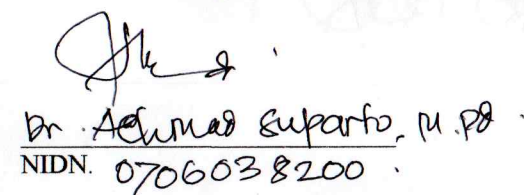 Dr. Achmad Suparto, M.Pd.
NIDN. 0706038200.